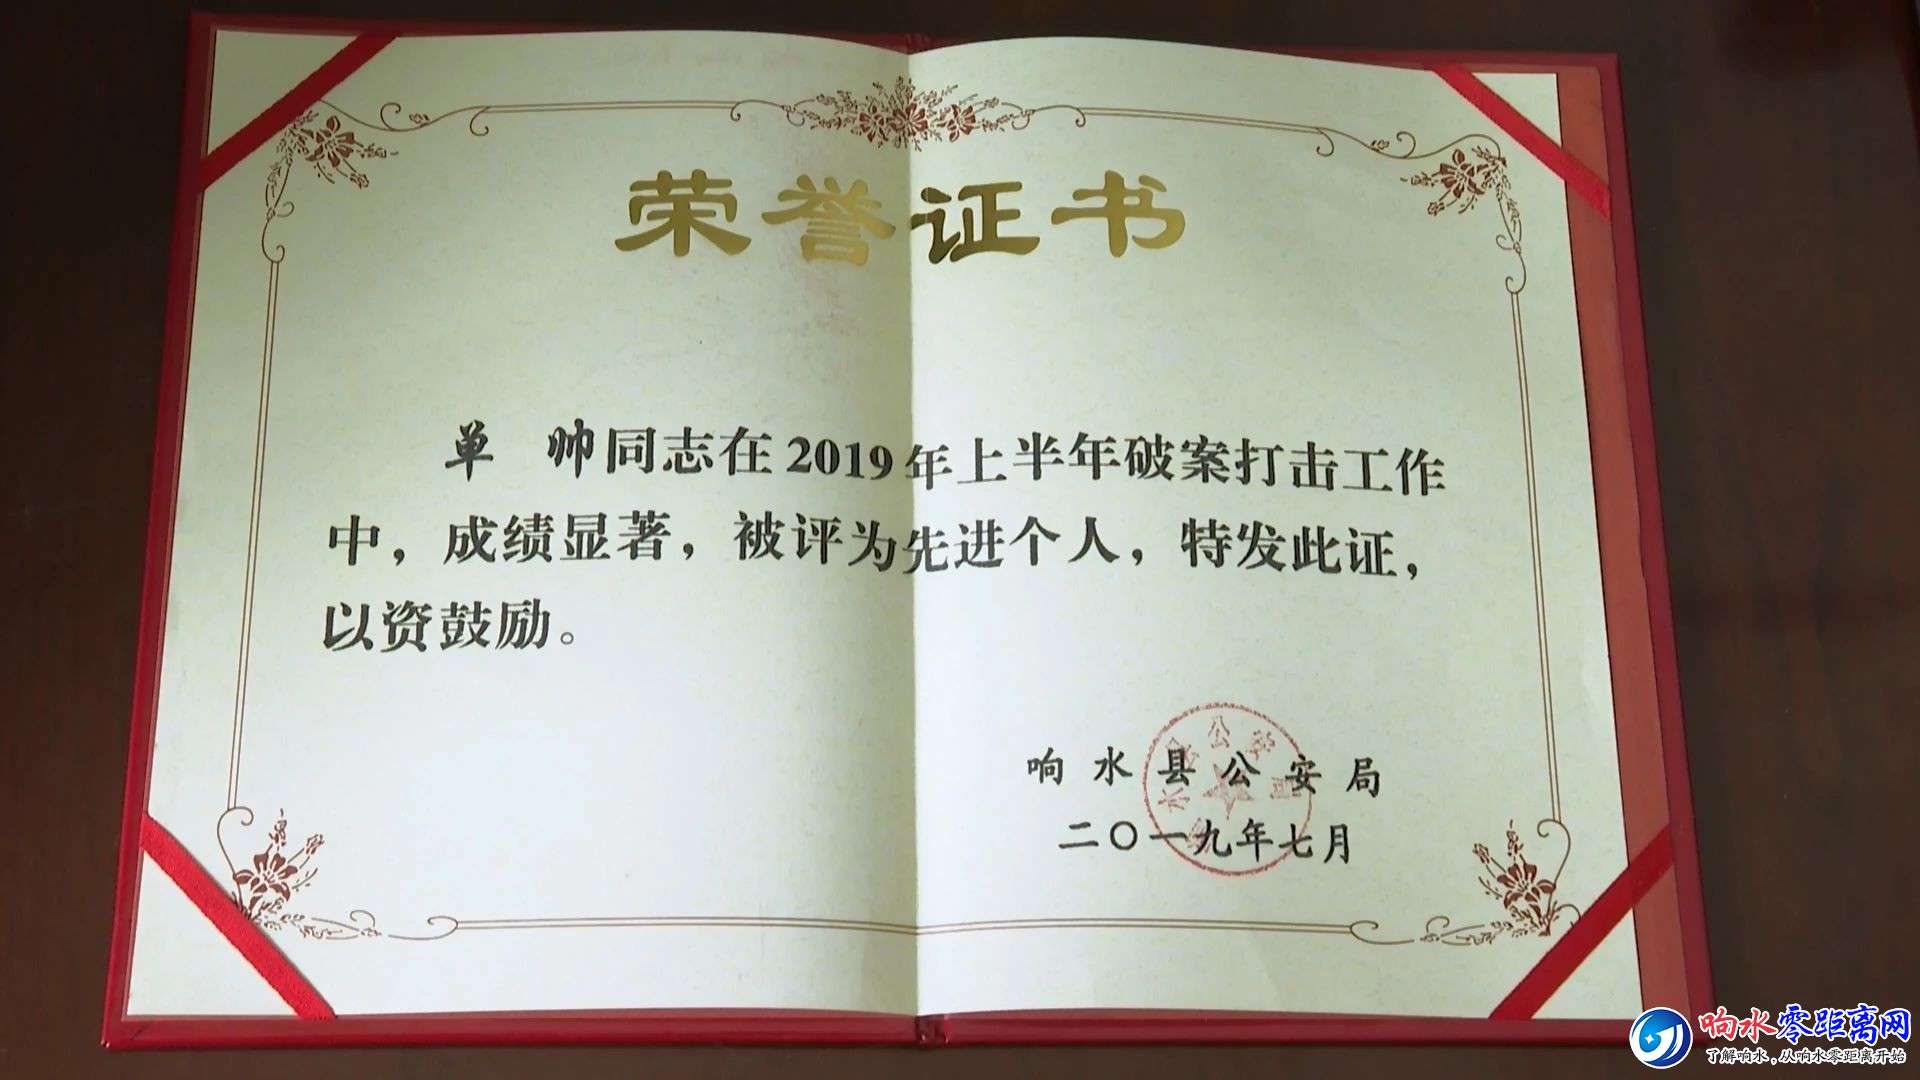 荣誉证书
单 帅同志在2019年上半年破案打击工作
中，成绩显著，被评为先进个人，特发此证，
以资鼓励。
响水县公安局
二〇一九年七月
响水零距离网
了解响水，从响水零距离开始